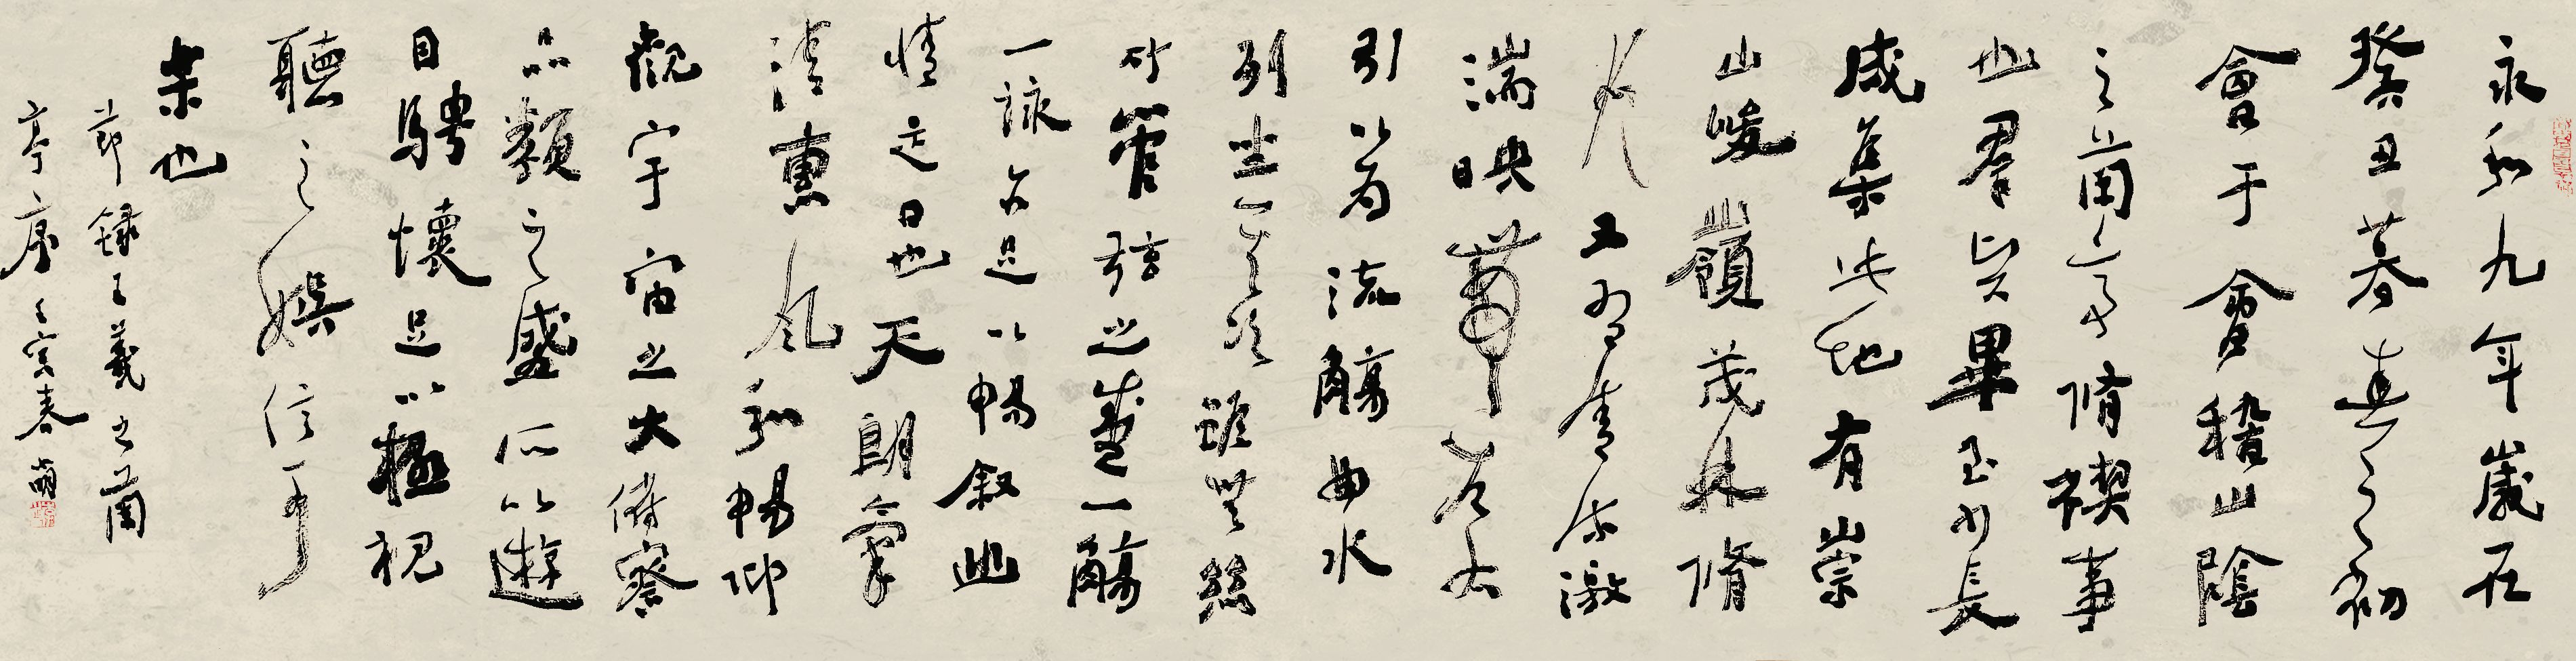 永和九年歲在
癸丑暮春之初
會于會稽山陰
之蘭亭脩禊事
也群賢畢至少長
咸集此地有崇
山峻嶺茂林脩
竹又有清流激
湍映帶左右
引以為流觴曲水
列坐其次雖無絲
竹管弦之盛一觴
一詠亦足以暢敘幽
情是日也天朗氣
清惠風和暢仰
觀宇宙之大俯察
品類之盛所以遊
目騁懷足以極視
聽之娛信可
樂也
節錄王羲之蘭
亭序